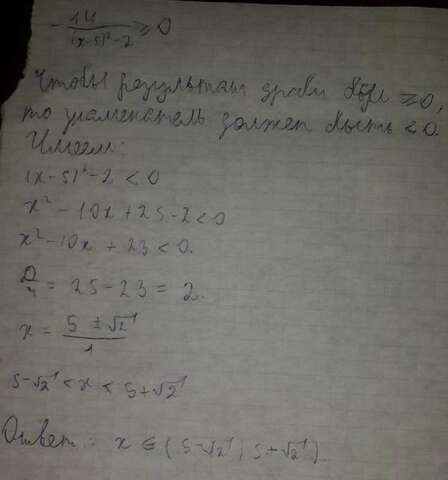 - 14 / ((x-5)² - 2) ≥ 0
Чтобы результат дроби был ≥ 0,
то знаменатель должен быть < 0.
Имеем:
(x-5)² - 2 < 0
x² - 10x + 25 - 2 < 0
x² - 10x + 23 < 0.
D/4 = 25 - 23 = 2.
x = (5 ± √2) / 1
5 - √2 < x < 5 + √2
Ответ: x ∈ (5 - √2; 5 + √2)